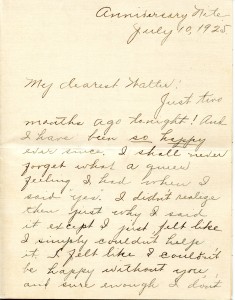 Anniversary Nite
July 10, 1925
My dearest Walter;
Just two
months ago tonight! And
I have been so happy
ever since. I shall never
forget what a queer
feeling I had when I
said "yes." I didn't realize
then just why I said
it except I just felt like
I simply couldn't help
it. I felt like I couldn't
be happy without you,
and sure enough I don't